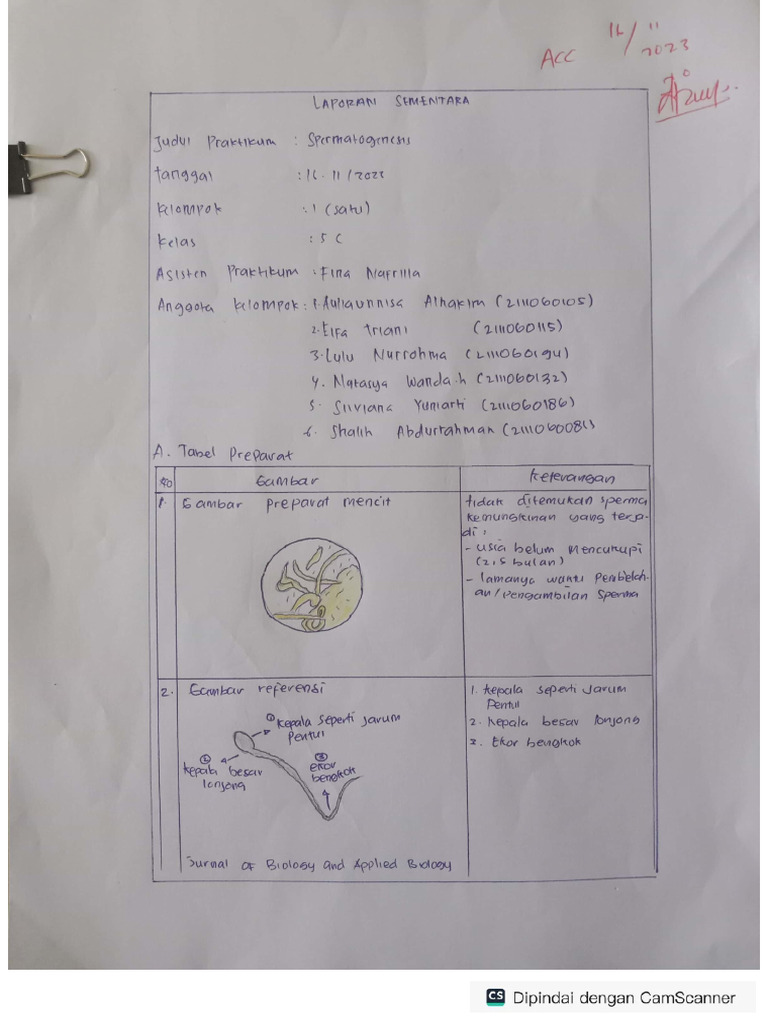 Acc 16/11 2023
LAPORAN SEMENTARA
Judul Praktikum : Spermatogenesis
tanggal : 16-11/2023
Kelompok : 1 (satu)
Kelas : 5 C
Asisten Praktikum : Fina Nafrilla
Anggota Kelompok : 1. Auliaunnisa Alhakim (2111060105)
2. Elfa Triani (2111060115)
3. Lulu Nurrohma (2111060194)
4. Natasya Wanda.h (2111060132)
5. Silviana Yuniarti (2111060186)
6. Shalih Abdurrahman (2111060081)
A. Tabel Preparat
No Gambar Keterangan
1. Gambar preparat mencit
tidak ditemukan sperma
kemungkinan yang terja-
di :
- usia belum mencukupi
(2,5 bulan)
- lamanya waktu Pembelah-
an/Pengambilan Sperma
2. Gambar referensi
① Kepala seperti jarum
Pentul
② kepala besar
lonjong
③ ekor
bengkok
Jurnal of Biology and Applied Biology
1. Kepala seperti Jarum
Pentul
2. Kepala besar lonjong
3. Ekor bengkok
CS Dipindai dengan CamScanner